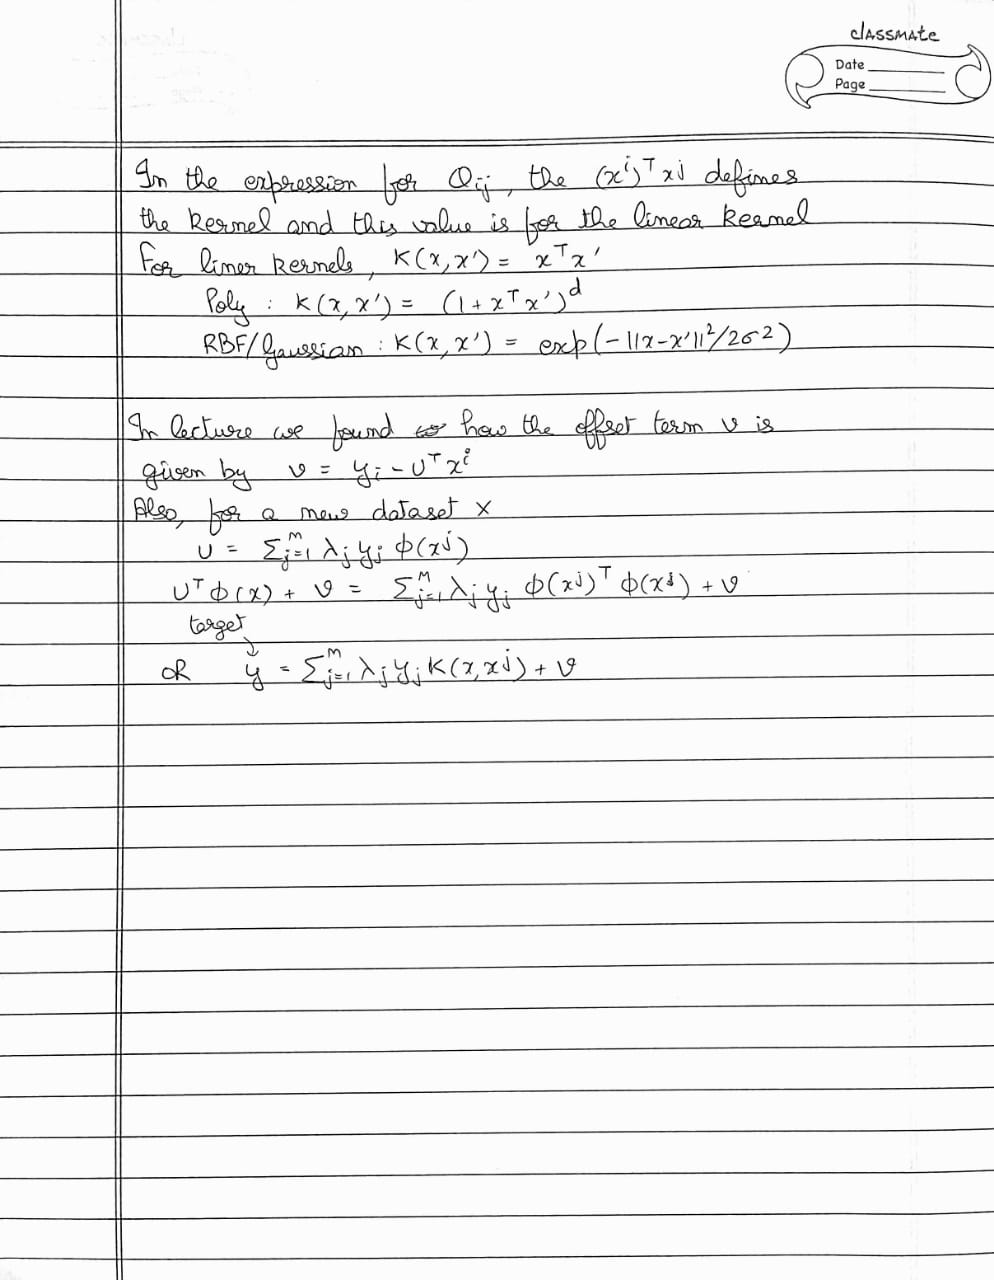 classmate
Date
Page
In the expression for Qij, the (xⁱ)ᵀxʲ defines
the kernel and this value is for the linear kernel
For liner kernels, K(x,x') = xᵀx'
Poly : K(x,x') = (1+xᵀx')ᵈ
RBF/Gaussian : K(x,x') = exp(-||x-x'||²/2σ²)
In lecture we found how the offset term v is
given by v = yᵢ - Uᵀxⁱ
Also, for a new dataset X
U = Σⱼ₌₁ᵐ λⱼyⱼ ϕ(xʲ)
Uᵀϕ(x) + v = Σⱼ₌₁ᵐ λⱼyⱼ ϕ(xʲ)ᵀ ϕ(xʲ) + v
target
OR y = Σⱼ₌₁ᵐ λⱼyⱼK(x,xʲ) + v